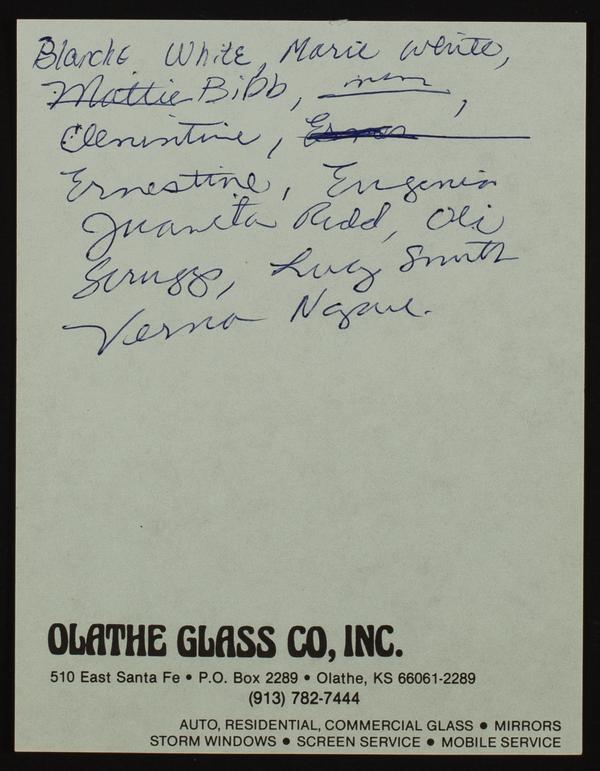 Blanche White, Marie White,
Mattie Bibb, mom,
Clementine,
Ernestine, Eugenia
Juanita Redd, Oli
Scruggs, Lucy Smith
Verna
OLATHE GLASS CO, INC.
510 East Santa Fe • P.O. Box 2289 • Olathe, KS 66061-2289
(913) 782-7444
AUTO, RESIDENTIAL, COMMERCIAL GLASS ● MIRRORS
STORM WINDOWS ● SCREEN SERVICE ● MOBILE SERVICE